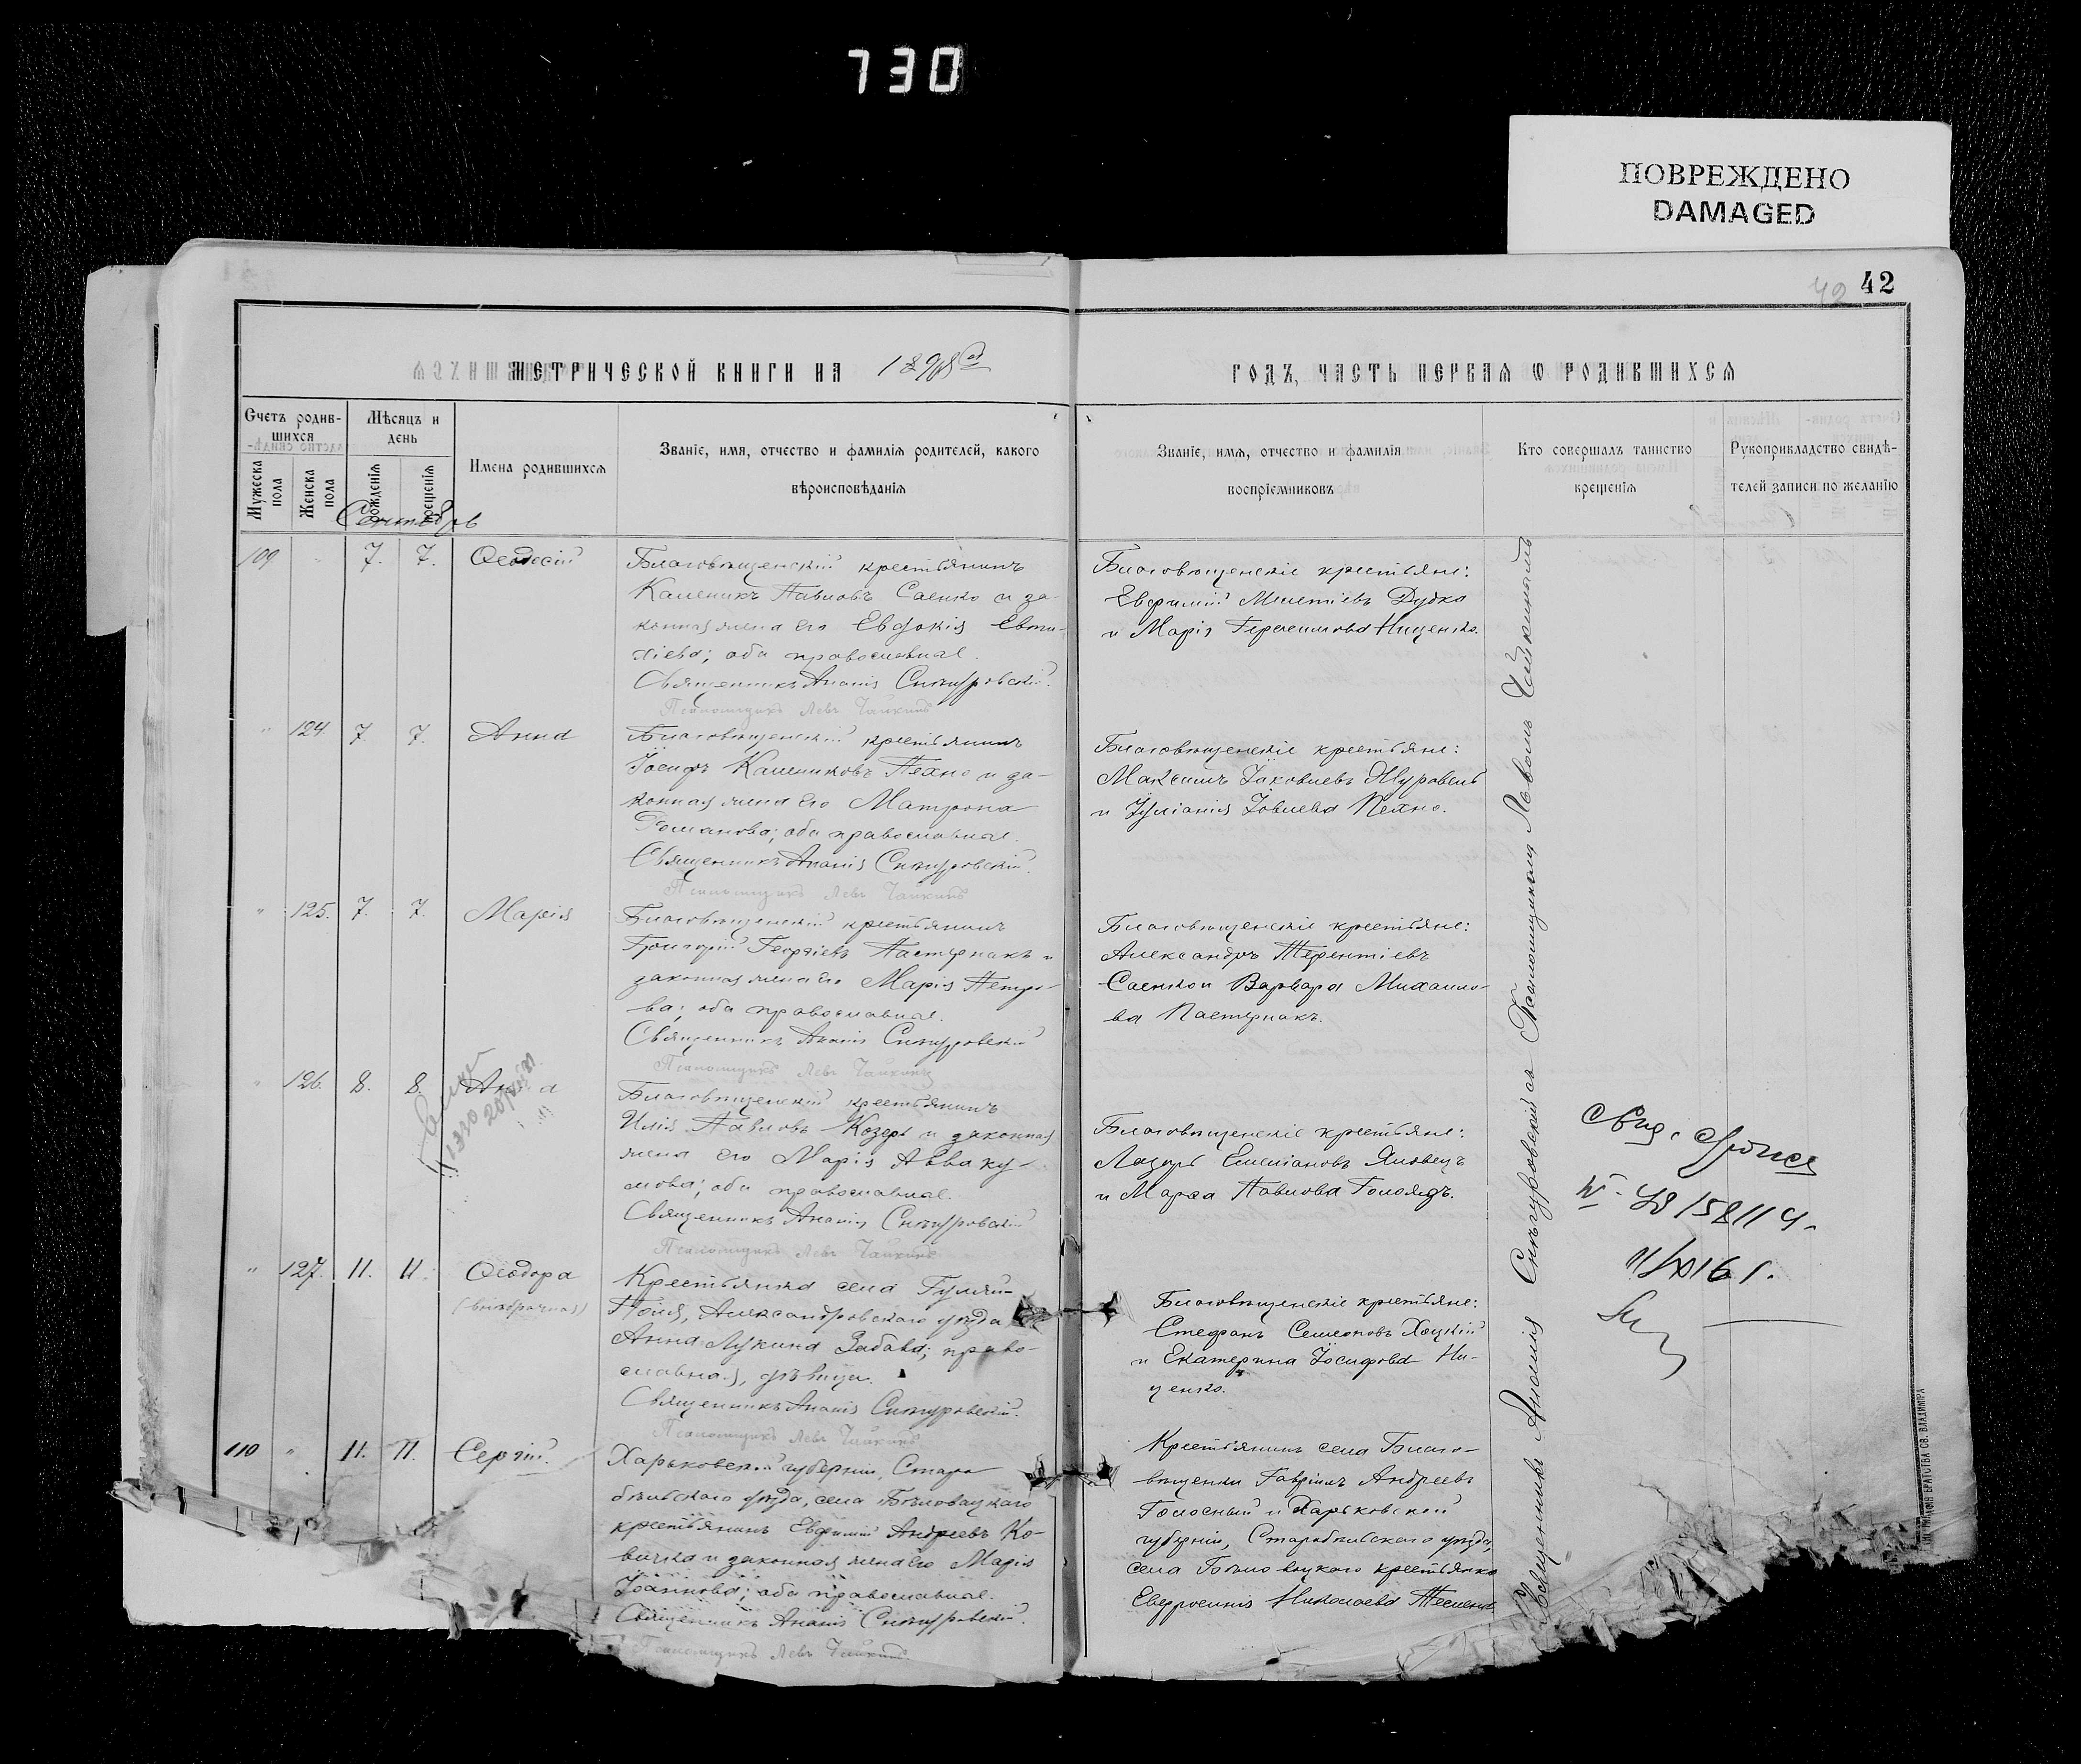 730
ПОВРЕЖДЕНО
DAMAGED
42
42
МЕТРИЧЕСКОЙ КНИГИ НА 1898й
ГОДЪ, ЧАСТЬ ПЕРВАЯ Ѡ РОДИВШИХСЯ
Счетъ родив-
шихся
Мѣсяцъ и
день
Мужеска
пола
Женска
пола
рожденія
крещенія
Имена родившихся
Званіе, имя, отчество и фамилія родителей, какого
вѣроисповѣданія
Званіе, имя, отчество и фамилія
воспріемниковъ
Кто совершалъ таинство
крещенія
Рукоприкладство свидѣ-
телей записи по желанію
Сентябрь
109 7. 7. Ѳеодосій
Благовѣщенскій крестьянинъ
Каленикъ Павловъ Саенко и за-
конная жена его Евдокія Евти-
хіева; оба православные.
Священникъ Ананія Снѣгуровскій.
Псаломщикъ Левъ Чайкинъ
Благовѣщенскіе крестьяне:
Евфимій Мелетіевъ Дудка
и Марія Герасимова Ниценко.
" 124 7 7. Анна
Благовѣщенскій крестьянинъ
Іосифъ Калениковъ Пехно и за-
конная жена его Матрона
Романова; оба православные.
Священникъ Ананія Снѣгуровскій.
Псаломщикъ Левъ Чайкинъ
Благовѣщенскіе крестьяне:
Максимъ Іаковлевъ Журавель
и Іуліанія Іовлева Пехно.
" 125. 7. 7. Марія
Благовѣщенскій крестьянинъ
Григорій Георгіевъ Пастернакъ и
законная жена его Марія Петро-
ва; оба православные.
Священникъ Ананія Снѣгуровскій
Псаломщикъ Левъ Чайкинъ
Благовѣщенскіе крестьяне:
Александръ Терентіевъ
Саенко и Варвара Михаило-
ва Пастернакъ.
" 126. 8. 8. Анна
Благовѣщенскій крестьянинъ
Илія Павловъ Козеръ и законная
жена его Марія Авваку-
мова; оба православные.
Священникъ Ананія Снѣгуровскій
Псаломщикъ Левъ Чайкинъ
Благовѣщенскіе крестьяне:
Лазарь Емеліановъ Яловецъ
и Марѳа Павлова Голоядъ.
" 127. 11. 11. Ѳеодора
(внѣбрачная)
Крестьянка села Гуляй-
Поля, Александровскаго уѣзда
Анна Лукина Забава; право-
славная, дѣвица.
Священникъ Ананія Снѣгуровскій.
Псаломщикъ Левъ Чайкинъ
Благовѣщенскіе крестьяне:
Стефанъ Семеоновъ Хоцкій
и Екатерина Іосифова Ни-
ценко.
110 " 11. 11. Сергій.
Харьковской губерніи, Старо
бѣльскаго уѣзда, села Бѣловодскаго
крестьянинъ Евфимій Андреевъ Ко-
вичка и законная жена его Марія
Іоаннова; оба православные.
Священникъ Ананія Снѣгуровскій.
Псаломщикъ Левъ Чайкинъ
Крестьянинъ села Благо-
вѣщенки Гавріилъ Андреевъ
Голосный и Харьковской
губерніи, Старобѣльскаго уѣзда,
села Бѣловодскаго крестьянка
Евфросинія Николаева
Священникъ Ананія Снѣгуровскій съ Псаломщикомъ Львомъ Чайкинымъ
11/XI 61.